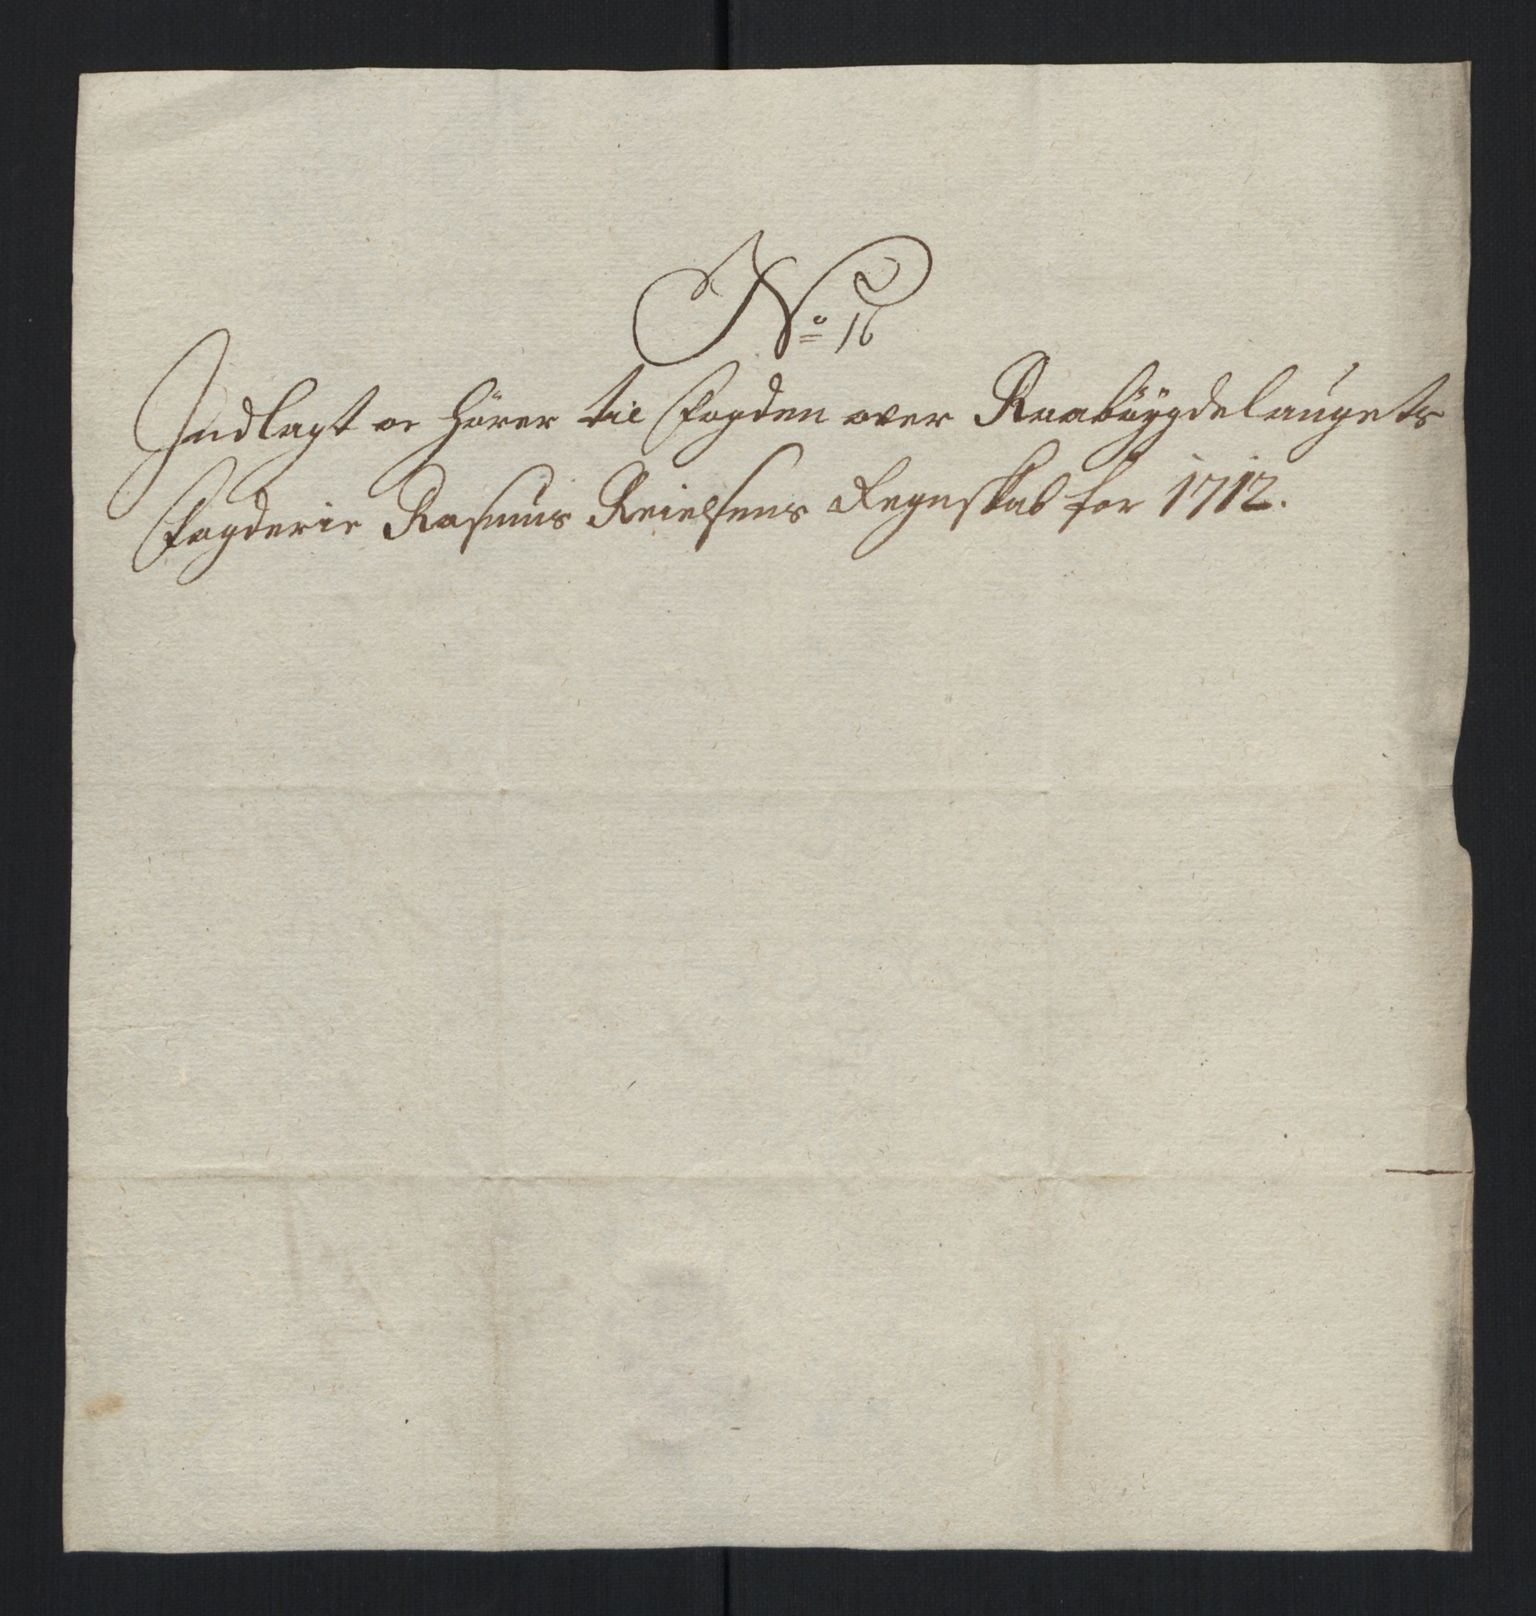 No 16
Indlagt oc hører til Fogden over Raabøygdelaugets
Fogderie Rasmus Reielsens Regnskab for 1712.